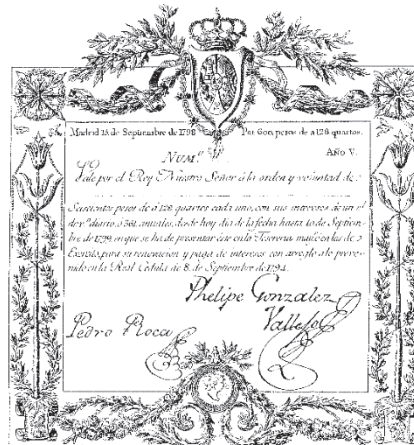 Madrid 15 de Septiembre de 1798 Por 600 pesos de a 128 quartos.
NUM.º Año V.
Vale por el Rey Nuestro Señor á la orden y voluntad de
Seiscientos pesos de á 128 quartos cada uno, con sus intereses de un
diario, ó anuales, desde hoy dia de la fecha hasta 10 de Septiem-
bre de 1799 en que se ha de presentar éste en la Tesorería
Exercito, para su renovacion y paga de intereses con arreglo á lo preve-
nido en la Real Cédula de 8 de Septiembre de 1794.
Phelipe Gonzalez
Pedro Roca Vallejo